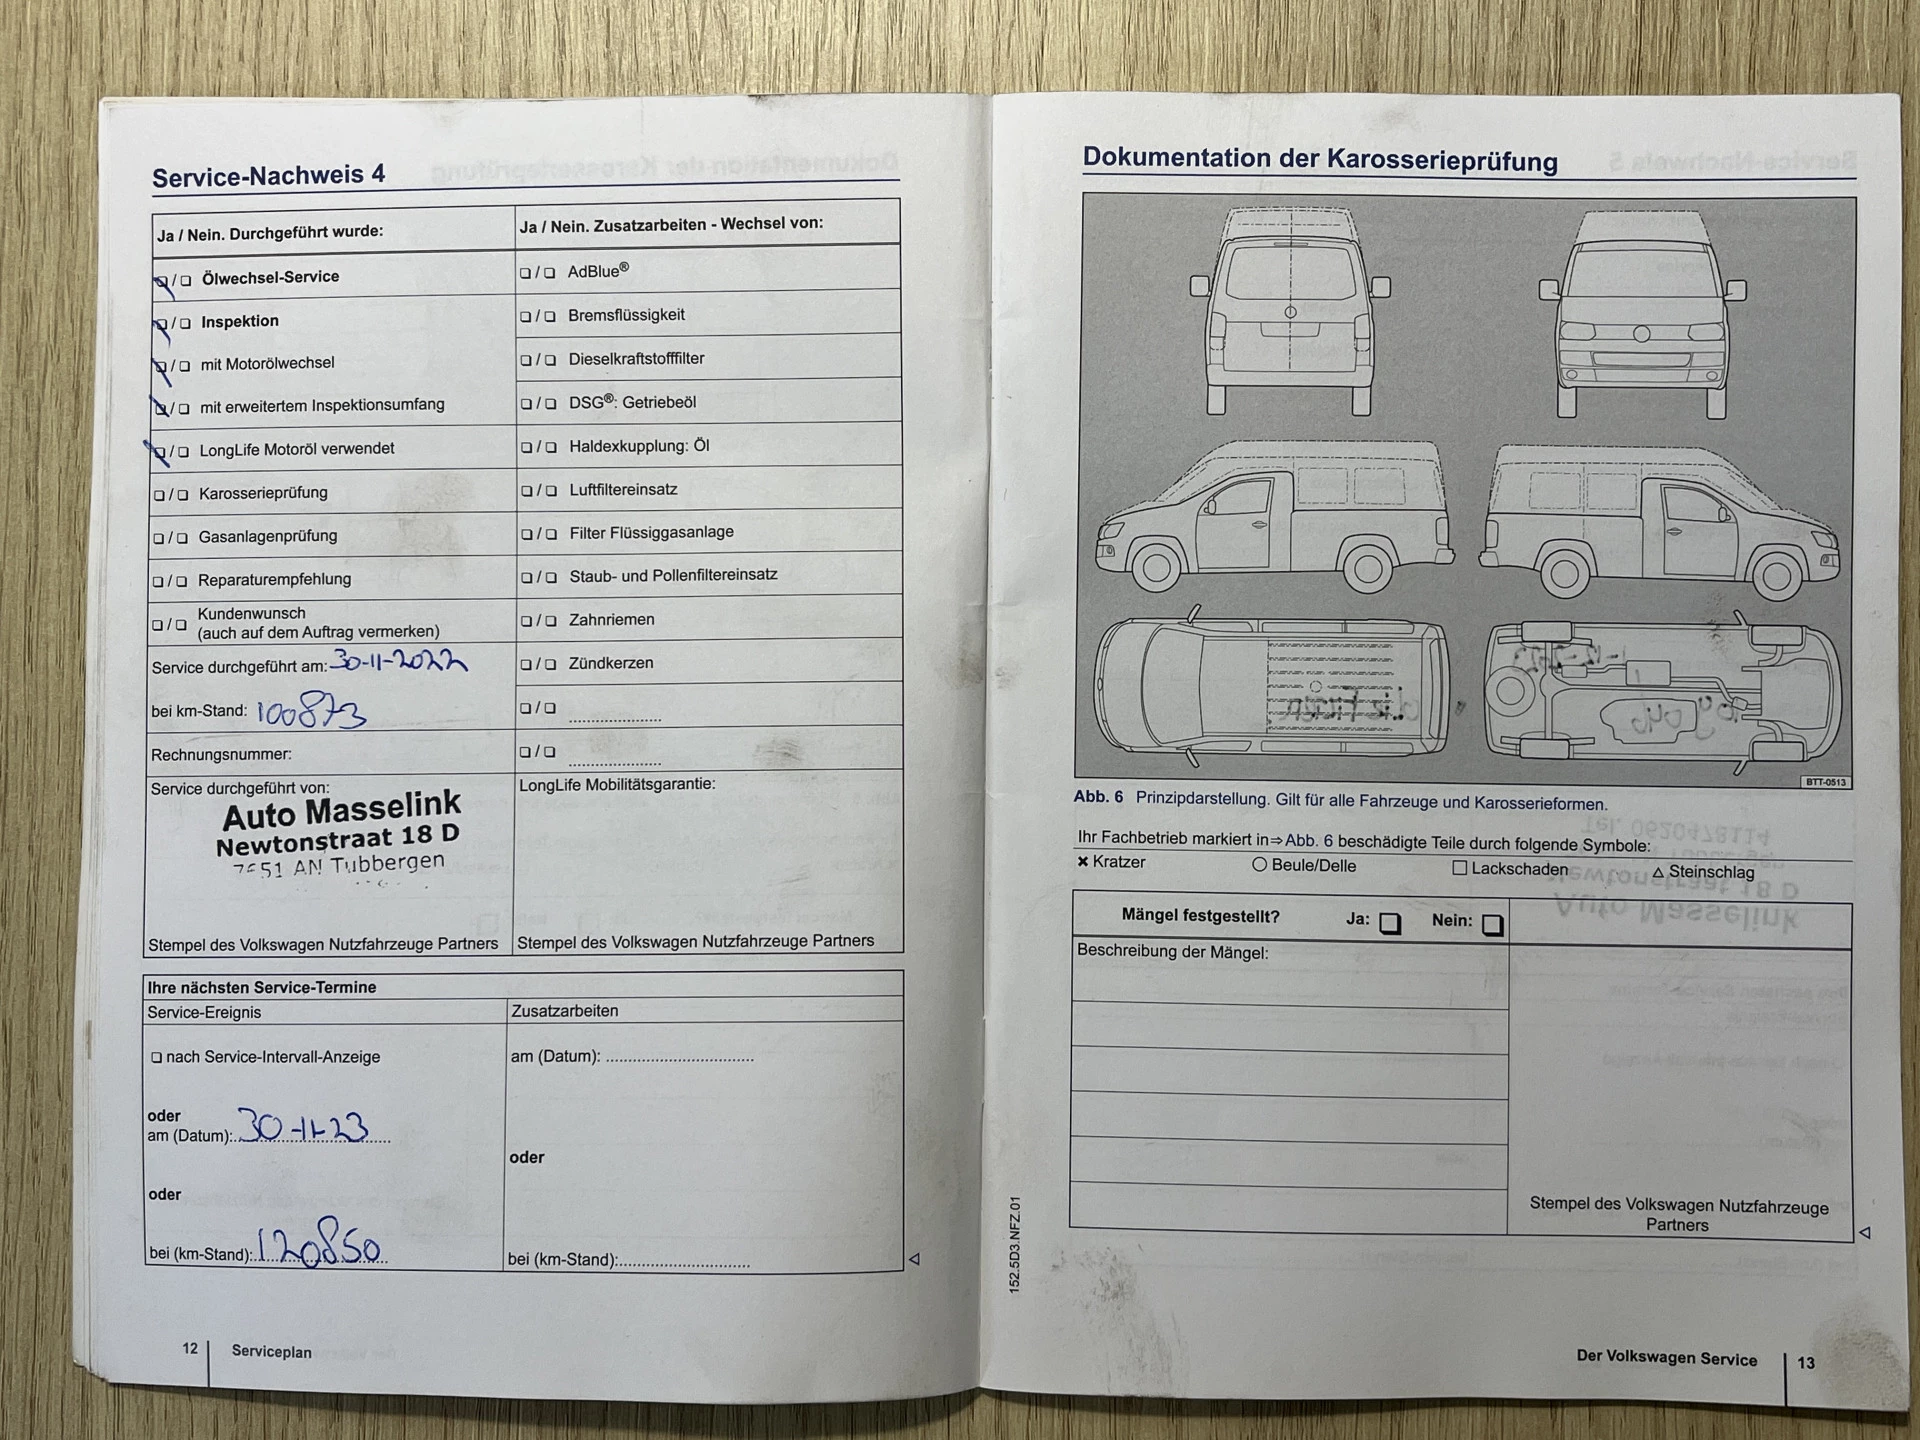 Service-Nachweis 4
Ja / Nein. Durchgeführt wurde:
Ja / Nein. Zusatzarbeiten - Wechsel von:
❑ / ❑ Ölwechsel-Service
❑ / ❑ AdBlue®
❑ / ❑ Inspektion
❑ / ❑ Bremsflüssigkeit
❑ / ❑ mit Motorölwechsel
❑ / ❑ Dieselkraftstofffilter
❑ / ❑ mit erweitertem Inspektionsumfang
❑ / ❑ DSG®: Getriebeöl
❑ / ❑ LongLife Motoröl verwendet
❑ / ❑ Haldexkupplung: Öl
❑ / ❑ Karosserieprüfung
❑ / ❑ Luftfiltereinsatz
❑ / ❑ Gasanlagenprüfung
❑ / ❑ Filter Flüssiggasanlage
❑ / ❑ Reparaturempfehlung
❑ / ❑ Staub- und Pollenfiltereinsatz
❑ / ❑ Kundenwunsch
(auch auf dem Auftrag vermerken)
❑ / ❑ Zahnriemen
Service durchgeführt am: 30-11-2022
❑ / ❑ Zündkerzen
bei km-Stand: 100873
❑ / ❑ ....................
Rechnungsnummer:
❑ / ❑ ....................
Service durchgeführt von:
LongLife Mobilitätsgarantie:
Auto Masselink
Newtonstraat 18 D
7651 AN Tubbergen
Stempel des Volkswagen Nutzfahrzeuge Partners
Stempel des Volkswagen Nutzfahrzeuge Partners
Ihre nächsten Service-Termine
Service-Ereignis
Zusatzarbeiten
❑ nach Service-Intervall-Anzeige
am (Datum): ....................
oder
am (Datum): 30-11-23
oder
oder
bei (km-Stand): 120850
bei (km-Stand): ....................
12
Serviceplan
Dokumentation der Karosserieprüfung
BTT-0513
Abb. 6 Prinzipdarstellung. Gilt für alle Fahrzeuge und Karosserieformen.
Ihr Fachbetrieb markiert in⇒Abb. 6 beschädigte Teile durch folgende Symbole:
× Kratzer
○ Beule/Delle
□ Lackschaden
△ Steinschlag
Mängel festgestellt? Ja: ❑ Nein: ❑
Beschreibung der Mängel:
Stempel des Volkswagen Nutzfahrzeuge
Partners
152.5D3.NFZ.01
Der Volkswagen Service
13